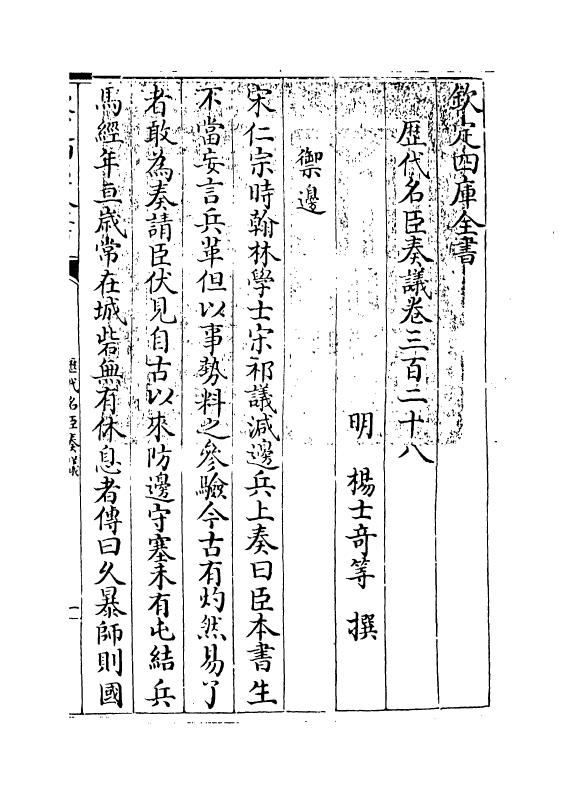 欽定四庫全書
歷代名臣奏議卷三百二十八
明 楊士奇等 撰
禦邊
宋仁宗時翰林學士宋祁議減邊兵上奏曰臣本書生
不當妄言兵革但以事勢料之參驗今古有灼然易了
者敢為奏請臣伏見自古以來防邊守塞未有屯結兵
馬經年亘歲常在城砦無有休息者傳曰久暴師則國
歷代名臣奏議
一